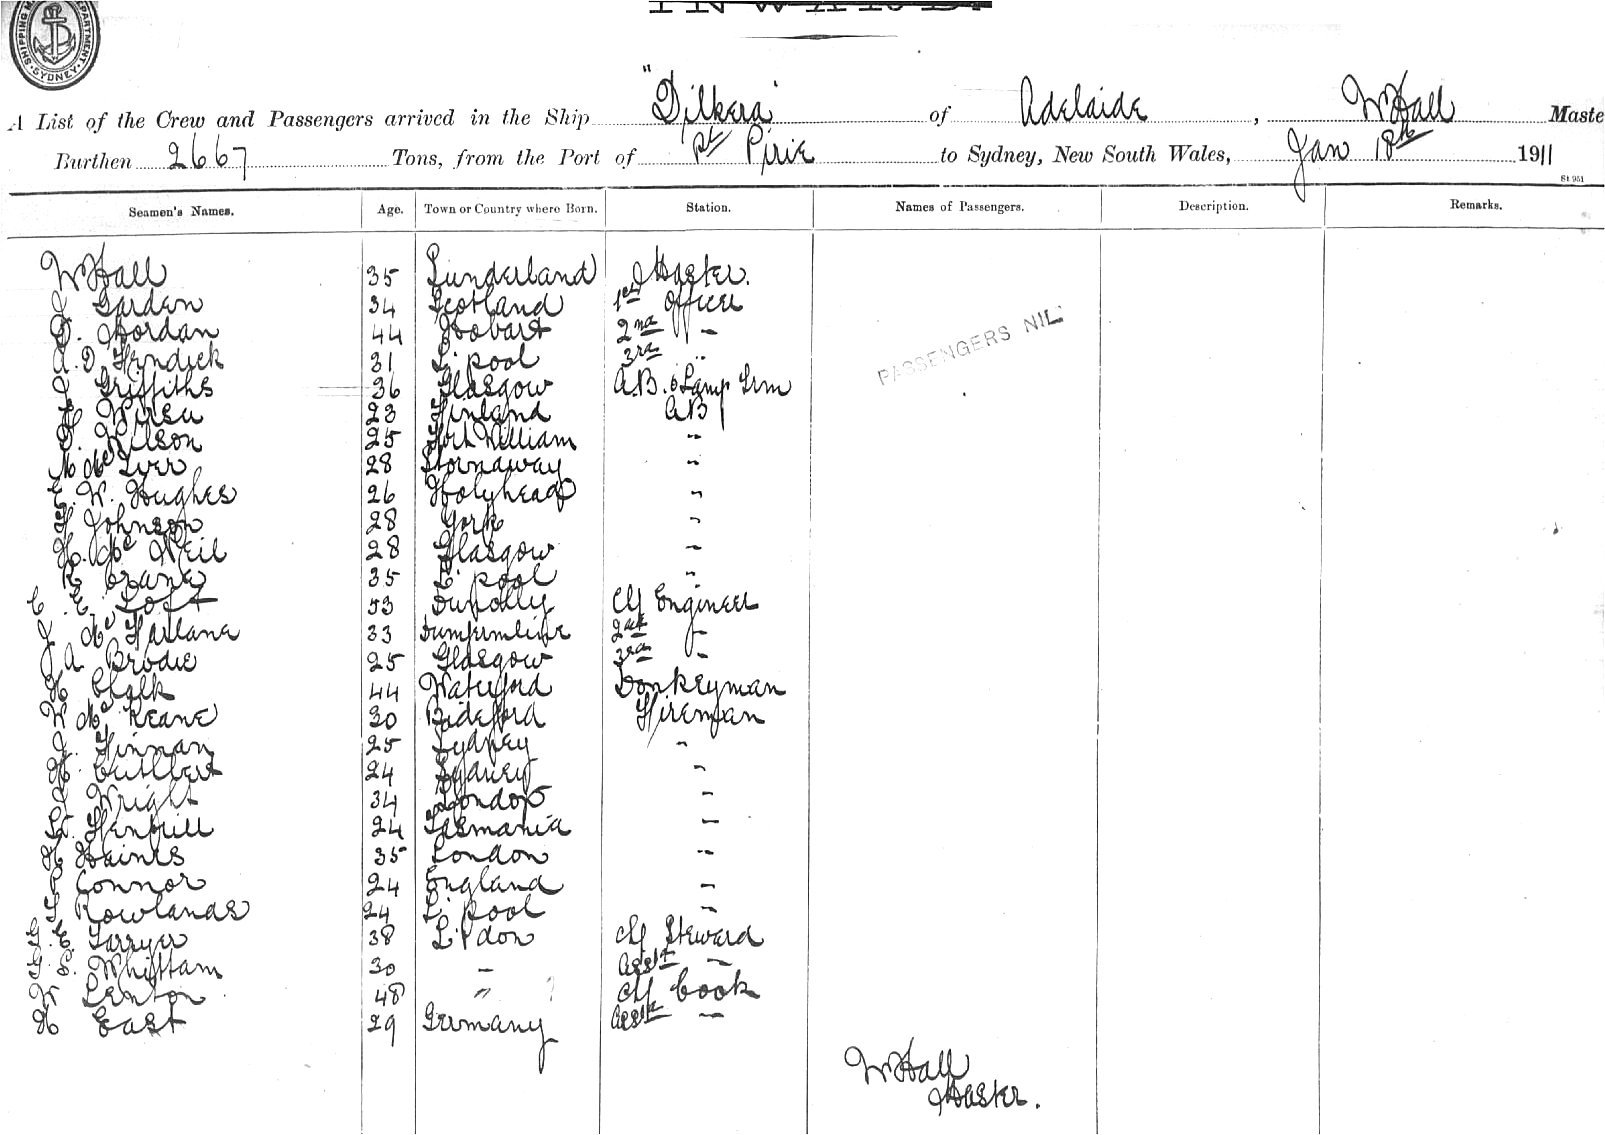 INWARD.
SHIPPING MASTER'S DEPARTMENT. SYDNEY
A List of the Crew and Passengers arrived in the Ship "Dilkera" of Adelaide, W Hall Maste
Burthen 2667 Tons, from the Port of Pt Pirie to Sydney, New South Wales, Jan 18th 1911
St 951
Seamen's Names. Age. Town or Country where Born. Station. Names of Passengers. Description. Remarks.
W Hall 35 Sunderland Master.
J Garden 34 Scotland 1st Officer
D. Jordan 44 Hobart 2nd "
A. D. 31 L'pool 3rd "
J Griffiths 36 Glasgow A.B. & Lamp Trm
23 Finland AB
Wilson 25 Fort William "
M McIver 28 Stornaway "
W. Hughes 26 Holyhead "
Johnson 28 York "
H. McNeil 28 Glasgow "
R Crane 35 L'pool "
C. E. Loft 53 Dunolly Cf Engineer
J. McFarlane 33 Dumfermline 2nd "
J A Brodie 25 Glasgow 3rd "
Chalk 44 Waterford Donkeyman
W McKeane 30 Bideford Fireman
J. Finnan 25 Sydney "
Cuthbert 24 Sydney "
J Wright 34 London "
24 Tasmania "
H Haines 35 London "
Connor 24 England "
Rowlands 24 L'pool "
E. Tarryer 38 L'don Cf Steward
Whittam 30 " Asst "
W Lenton 48 " Cf Cook
H East 29 Germany Asst "
PASSENGERS NIL
W Hall
Master.